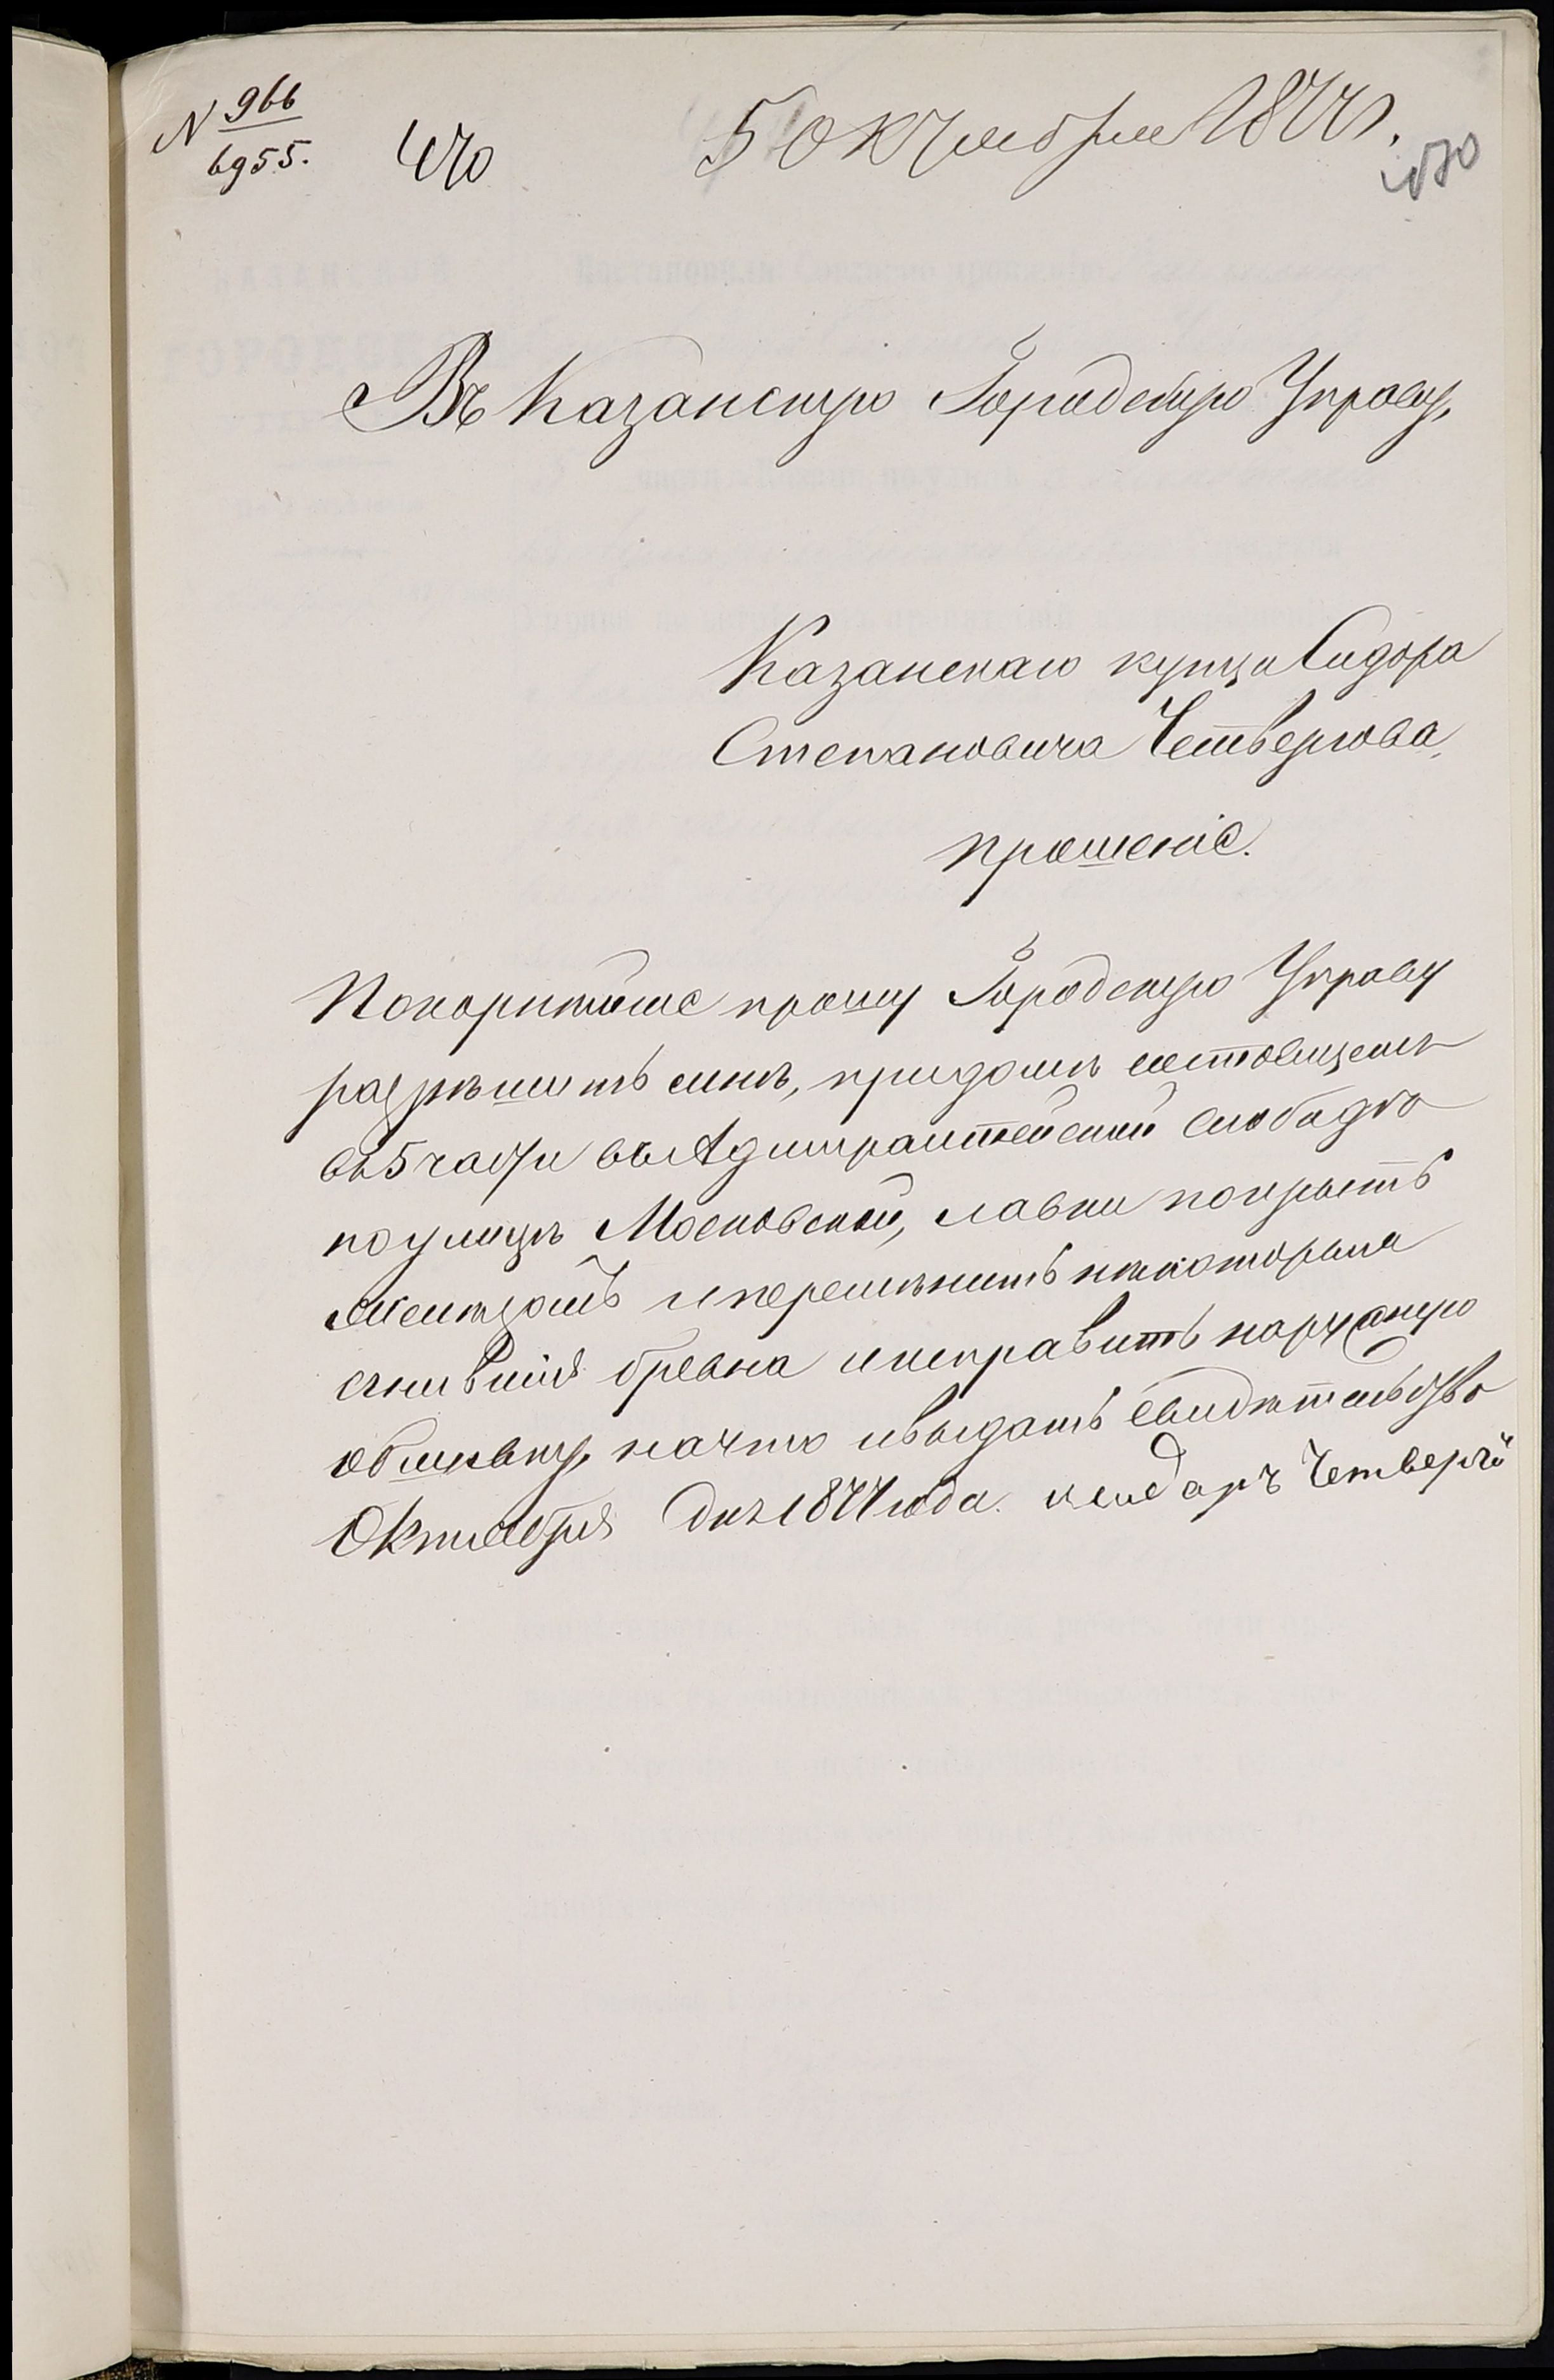 N 966
6955.
470
5 Октября 1877 г.
470
Въ Казанскую Городскую Управу,
Казанскаго купца Сидора
Степановича Четвергова,
прошеніе.
Покорнѣйше прошу Городскую Управу
разрѣшить мнѣ, придомѣ состоящемъ
въ 5 части въ Адмиралтейской слободѣ
по улицѣ Московской, лавки покрыть
желѣзомъ и перемѣнить нѣкоторыя
сгнившія бревна и исправить наружную
обшивку, на что и выдать свидѣтельство
Октября дня 1877 года.